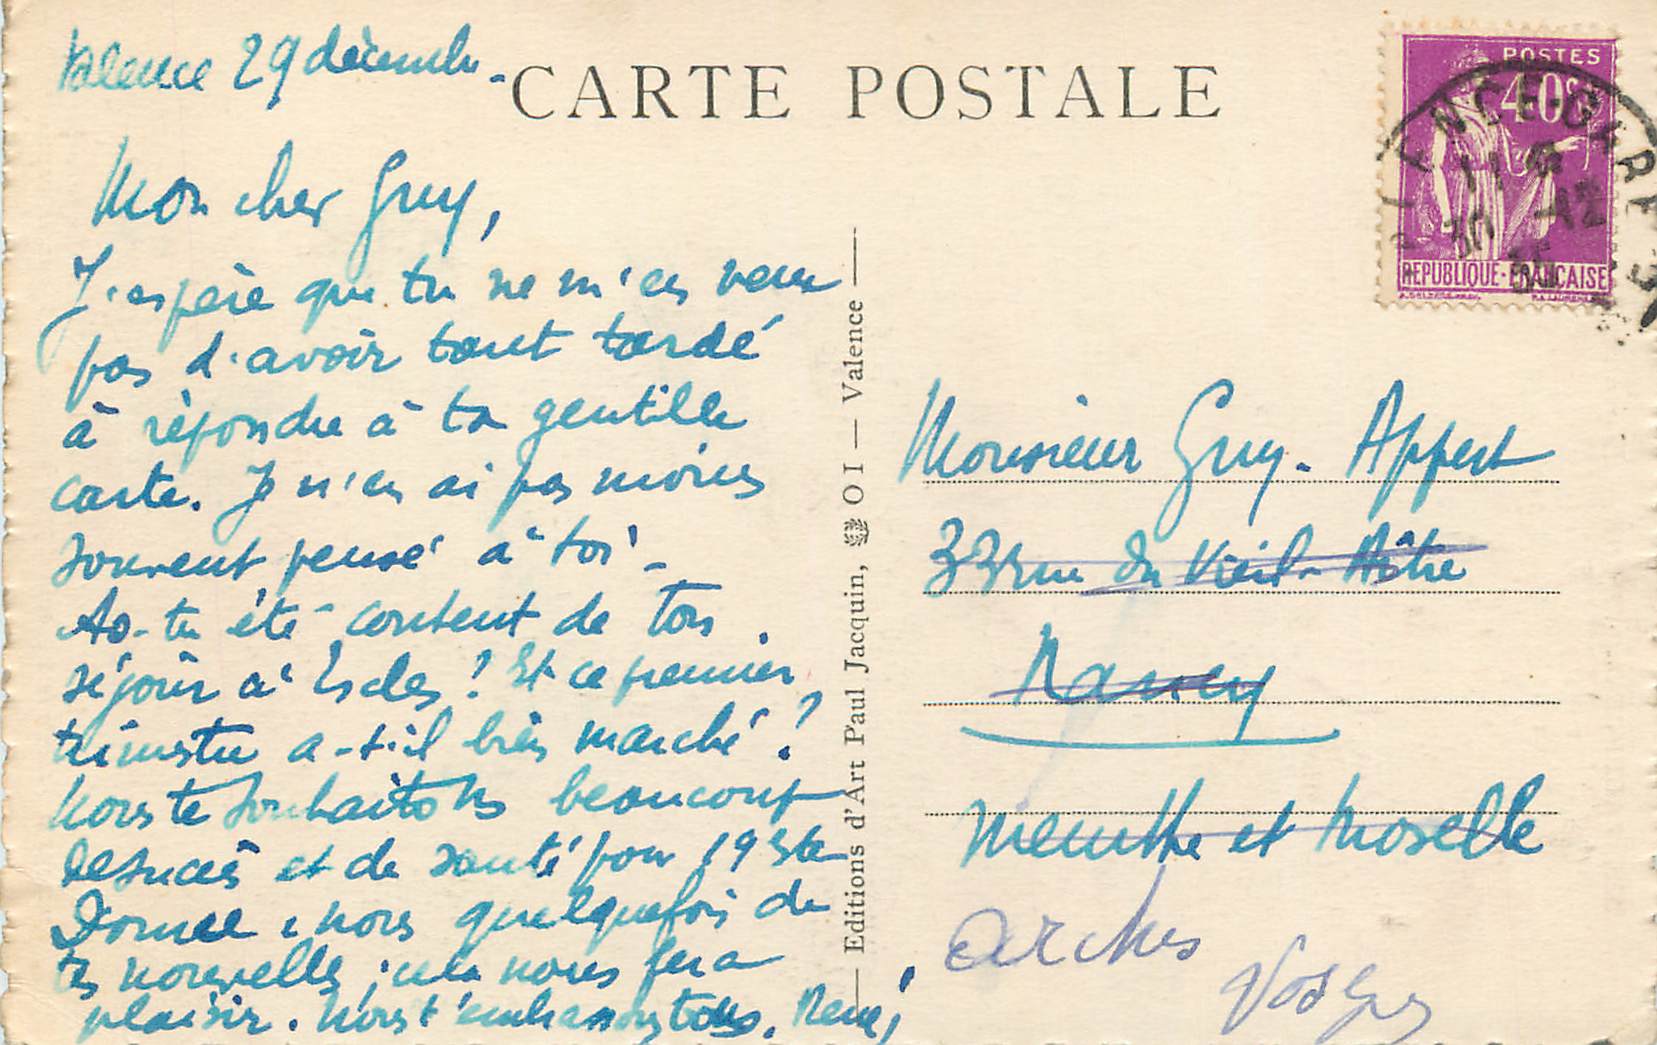 Valence 29 décembre.
CARTE POSTALE
Mon cher Guy,
J'espère que tu ne m'en veux
pas d'avoir tant tardé
à répondre à ta gentille
carte. Je n'en ai pas moins
souvent pensé à toi -
As-tu été content de ton
séjour à Escles ? Et ce premier
trimestre a-t-il bien marché ?
Nous te souhaitons beaucoup
de succès et de santé pour 193
Donne-nous quelquefois de
tes nouvelles, cela nous fera
plaisir. Nous t'embrassons tous. René
Editions d'Art Paul Jacquin, O I — Valence
POSTES
40c
REPUBLIQUE-FRANCAISE
VALENCE-GARE
30 -12
Monsieur Guy. Appert
33 rue du Vieil-Aître
Nancy
Meurthe et Moselle
Arches
Vosges